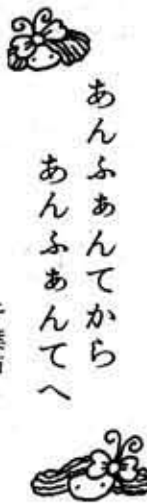 あんふぁんてから
あんふぁんてへ